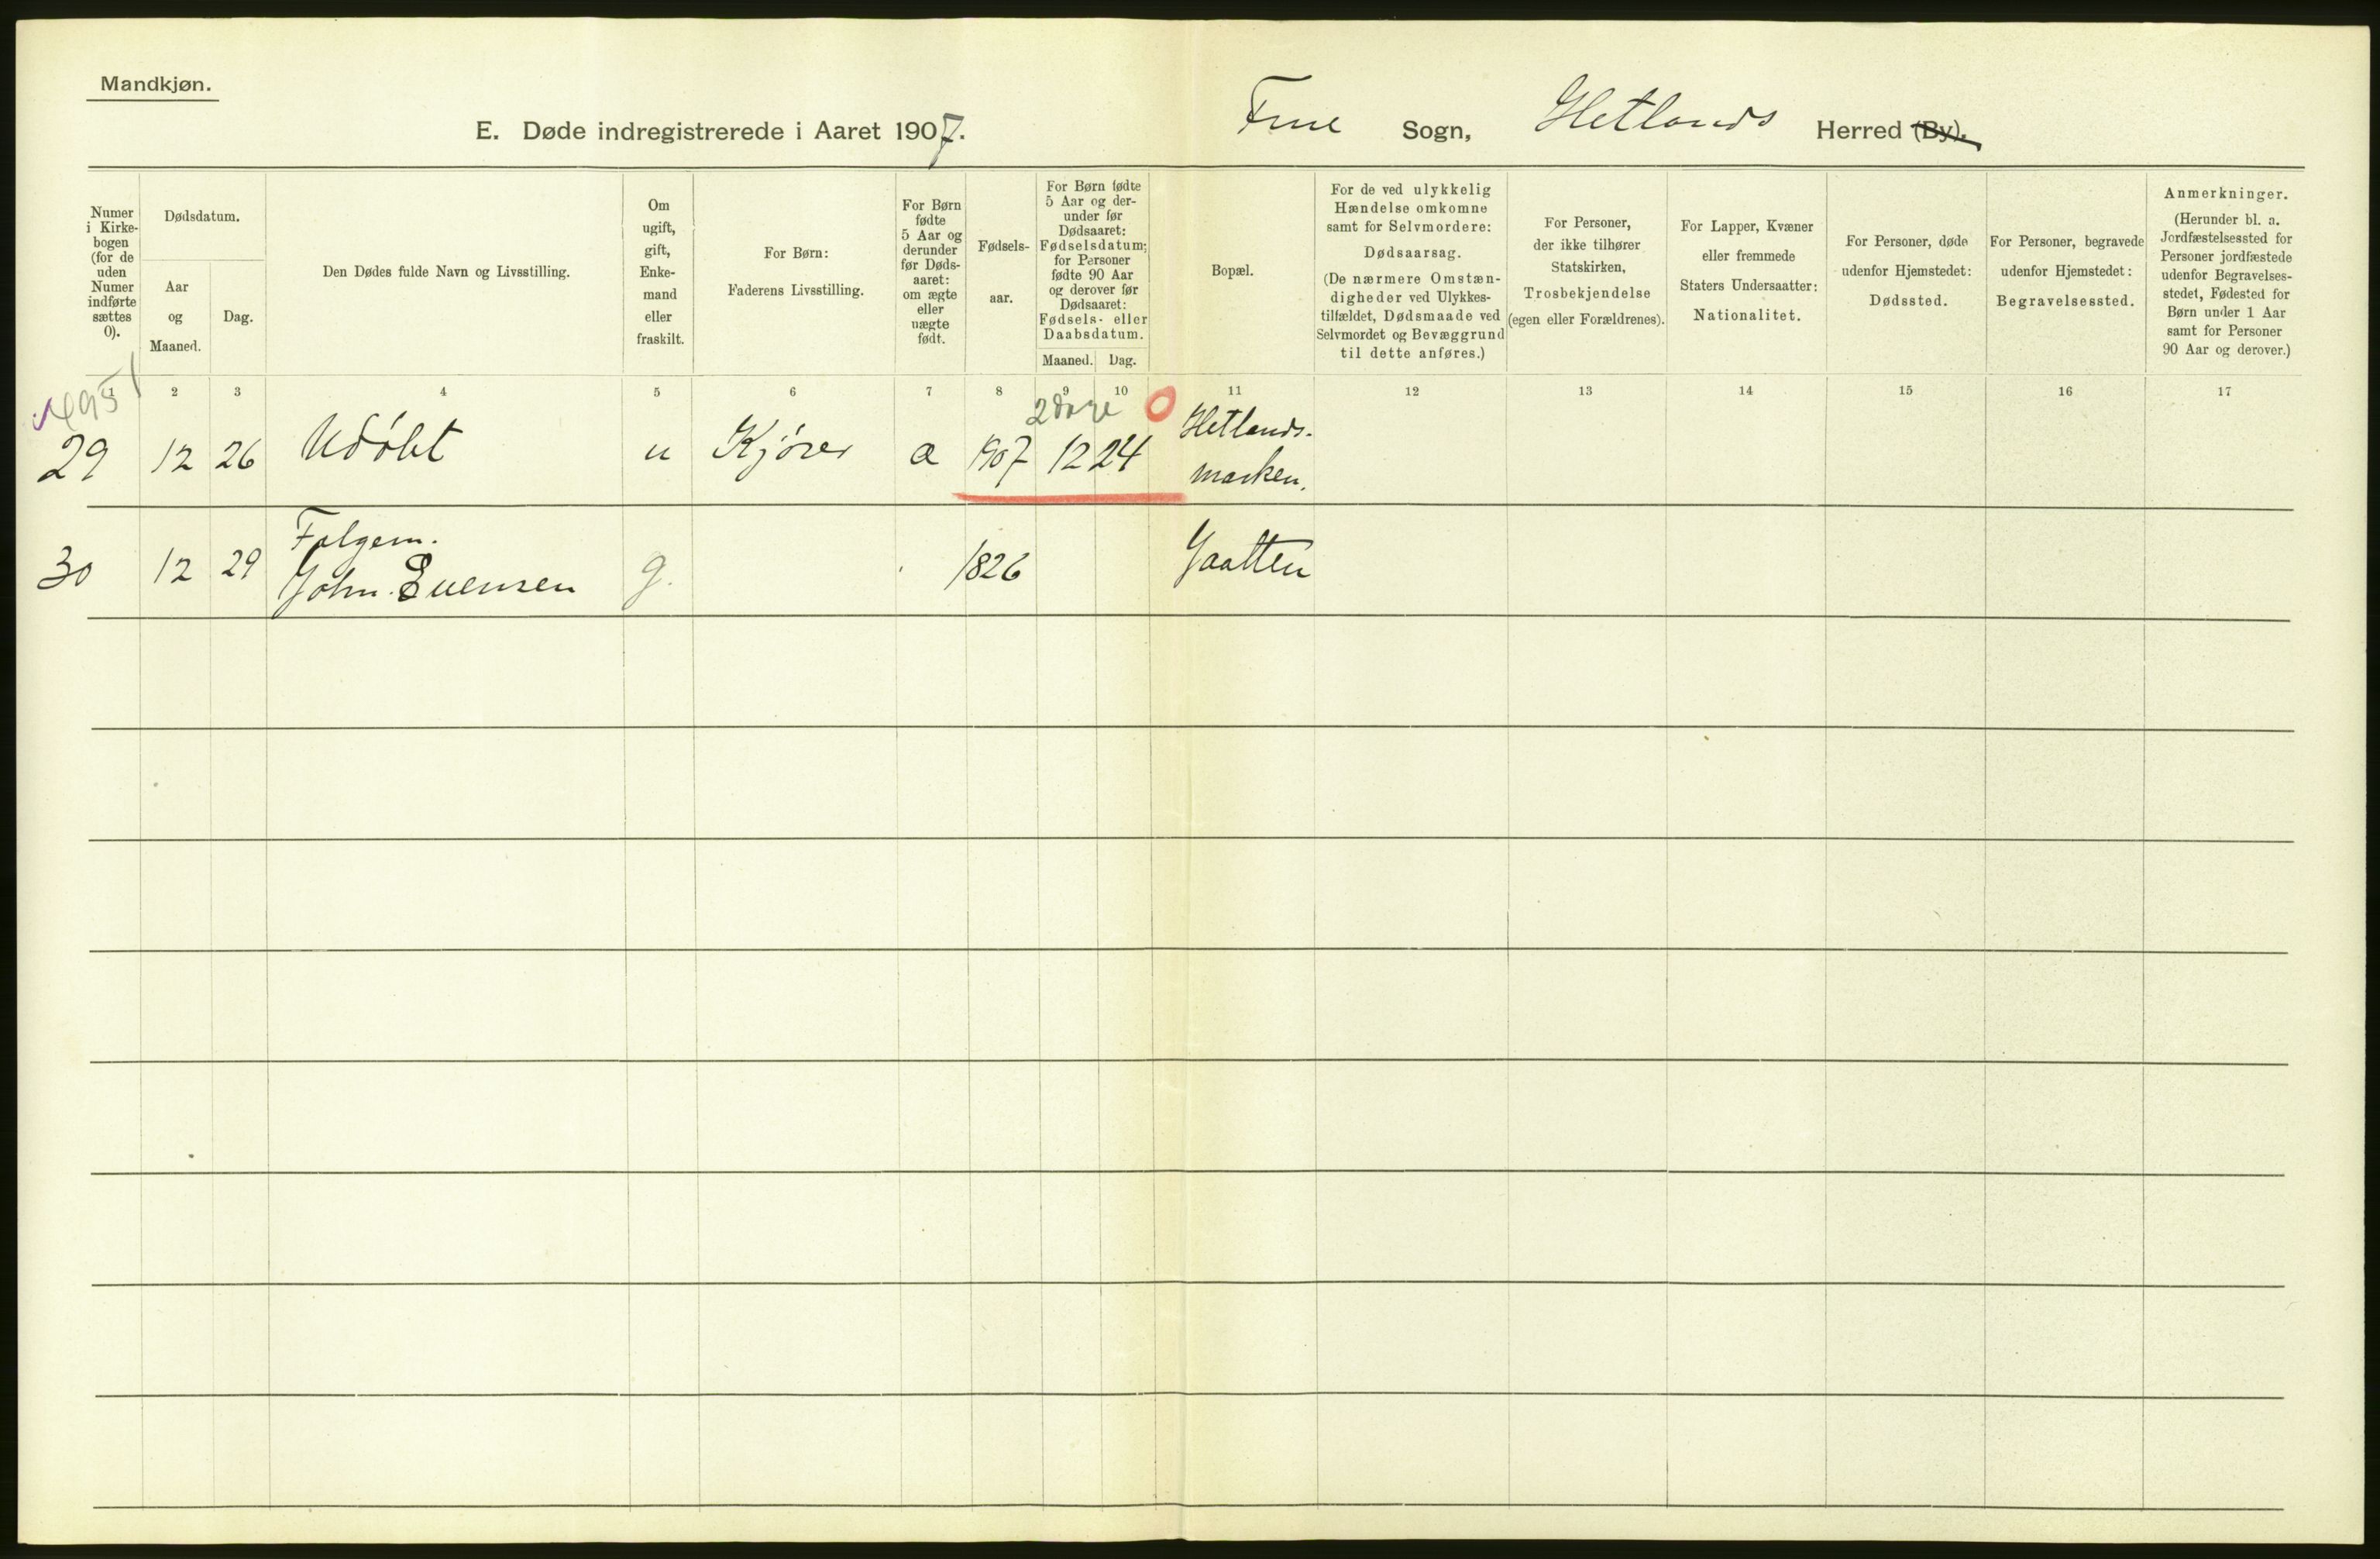 Mandkjøn.
E. Døde indregistrerede i Aaret 1907.
Frue Sogn, Hetlands Herred (By).
Numer
i Kirke-
bogen
(for de
uden
Numer
indførte
sættes
0).
Dødsdatum.
Aar
og
Maaned.
Dag.
Den Dødes fulde Navn og Livsstilling.
Om
ugift,
gift,
Enke-
mand
eller
fraskilt.
For Børn:
Faderens Livsstilling.
For Børn
fødte
5 Aar og
derunder
før Døds-
aaret:
om ægte
eller
uægte
født.
Fødsels-
aar.
For Børn fødte
5 Aar og der-
under før
Dødsaaret:
Fødselsdatum;
for Personer
fødte 90 Aar
og derover før
Dødsaaret:
Fødsels- eller
Daabsdatum.
Maaned. Dag.
Bopæl.
For de ved ulykkelig
Hændelse omkomne
samt for Selvmordere:
Dødsaarsag.
(De nærmere Omstæn-
digheder ved Ulykkes-
tilfældet, Dødsmaade ved
Selvmordet og Bevæggrund
til dette anføres.)
For Personer,
der ikke tilhører
Statskirken,
Trosbekjendelse
(egen eller Forældrenes).
For Lapper, Kvæner
eller fremmede
Staters Undersaatter:
Nationalitet.
For Personer, døde
udenfor Hjemstedet:
Dødssted.
For Personer, begravede
udenfor Hjemstedet:
Begravelsessted.
Anmerkninger.
(Herunder bl. a.
Jordfæstelsessted for
Personer jordfæstede
udenfor Begravelses-
stedet, Fødested for
Børn under 1 Aar
samt for Personer
90 Aar og derover.)
1 2 3 4 5 6 7 8 9 10 11 12 13 14 15 16 17
495
2 dage 0
29 12 26 Udøbt u Kjører æ 1907 12 24 Hetlands-
marken.
30 12 29 Folgem.
John Svensen g. 1826 Gaatten